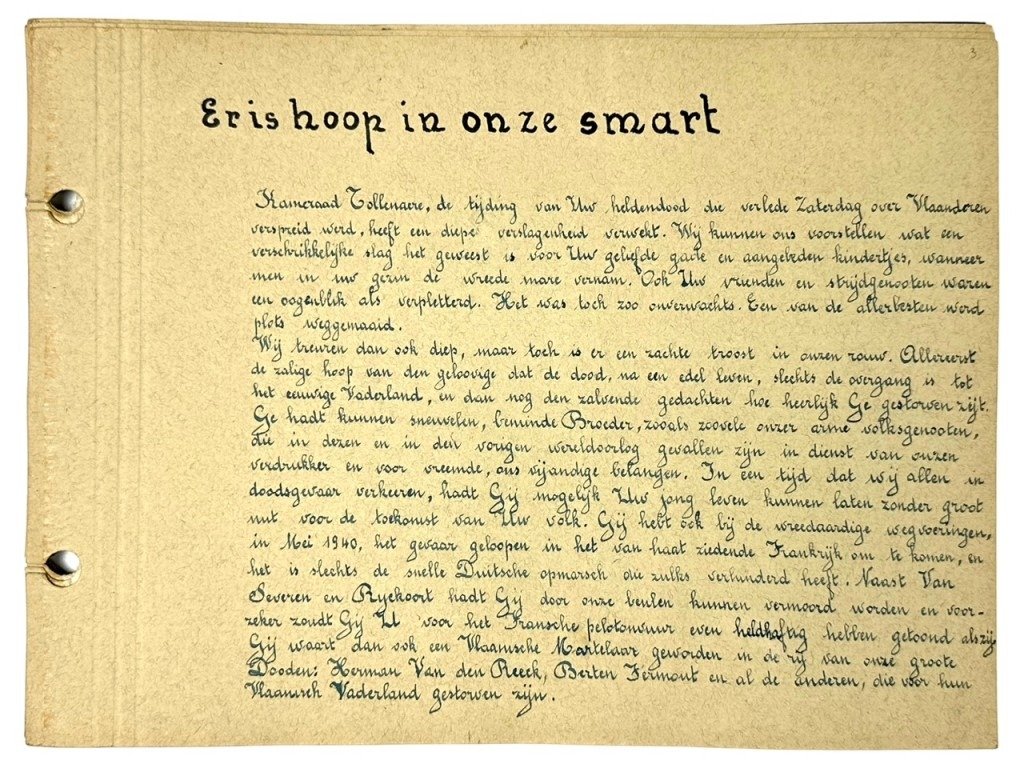 3
Er is hoop in onze smart
Kameraad Tollenaere, de tijding van Uw heldendood die verlede Zaterdag over Vlaanderen
verspreid werd, heeft een diepe verslagenheid verwekt. Wij kunnen ons voorstellen wat een
verschrikkelijke slag het geweest is voor Uw geliefde gade en aangebeden kindertjes, wanneer
men in uw gezin de wreede mare vernam. Ook Uw vrienden en strijdgenooten waren
een oogenblik als verpletterd. Het was toch zoo onverwachts. Een van de allerbesten werd
plots weggemaaid.
Wij treuren dan ook diep, maar toch is er een zachte troost in onzen rouw. Allereerst
de zalige hoop van den geloovige dat de dood, na een edel leven, slechts de overgang is tot
het eeuwige Vaderland, en dan nog den zalvende gedachten hoe heerlijk Ge gestorven zijt.
Ge hadt kunnen sneuvelen, beminde Broeder, zooals zoovele onzer arme volksgenooten,
die in dezen en in den vorigen wereldoorlog gevallen zijn in dienst van onzen
verdrukker en voor vreemde, ons vijandige belangen. In een tijd dat wij allen in
doodsgevaar verkeeren, hadt Gij mogelijk Uw jong leven kunnen laten zonder groot
nut voor de toekomst van Uw volk. Gij hebt ook bij de wreedaardige wegvoeringen,
in Mei 1940, het gevaar geloopen in het van haat ziedende Frankrijk om te komen, en
het is slechts de snelle Duitsche opmarsch die zulks verhinderd heeft. Naast Van
Severen en Ryckoort hadt Gij door onze beulen kunnen vermoord worden en voor-
zeker zoudt Gij U voor het Fransche pelotonvuur even heldhaftig hebben getoond als zij.
Gij waart dan ook een Vlaamsche Martelaar geworden in de rij van onze groote
Dooden: Herman Van den Reeck, Berten Fermout en al de anderen, die voor hun
Vlaamsch Vaderland gestorven zijn.